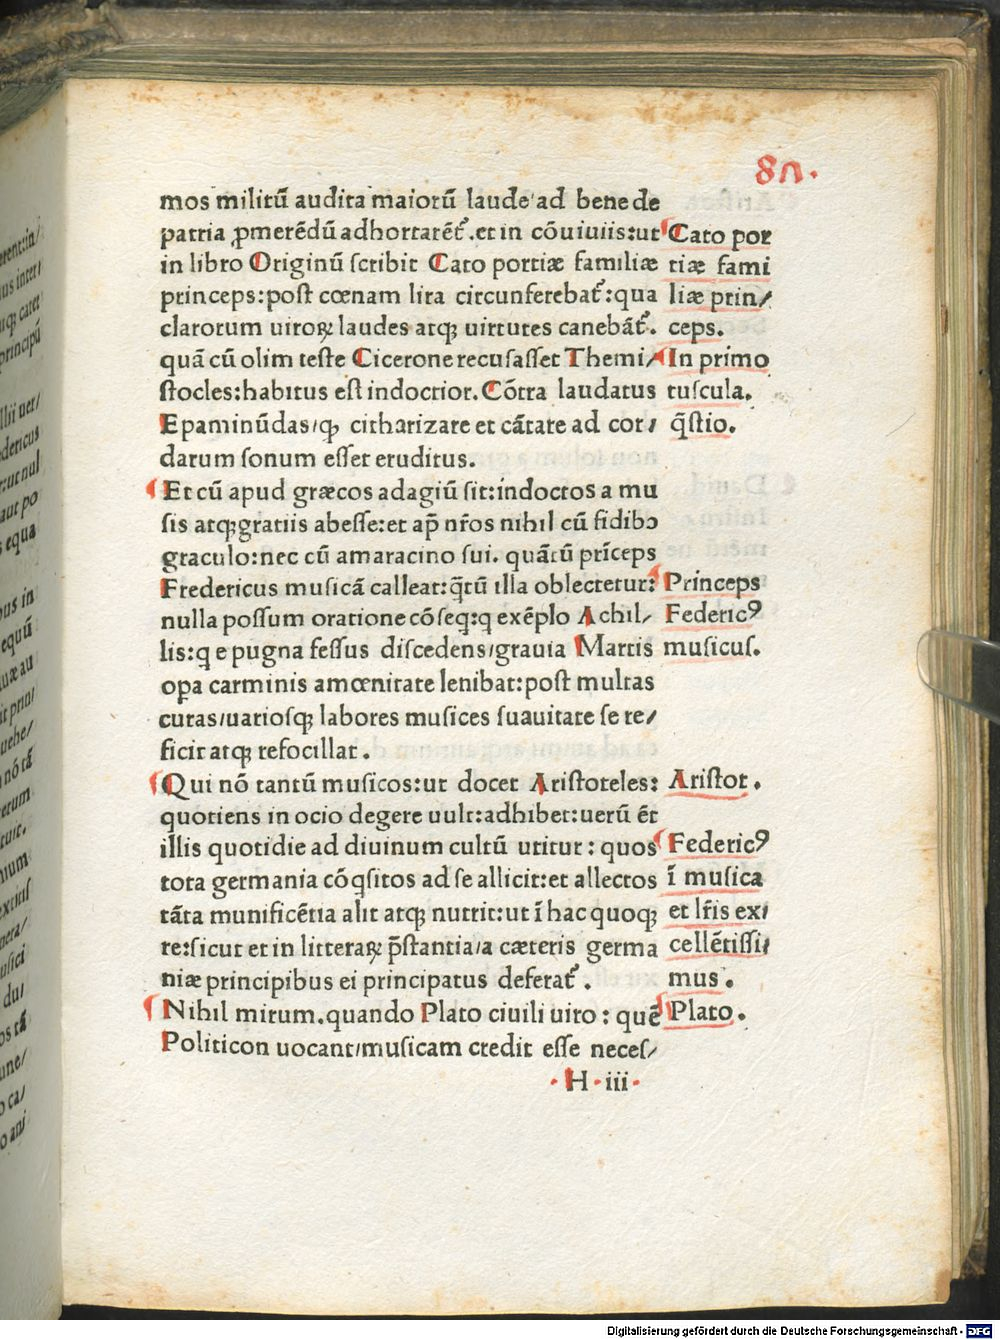 8n.
mos militū audita maiorū laude ad bene de
patria ꝓmerēdū adhortarēt᷑. et in cōuiuiis: ut
in libro Originū scribit Cato portiæ familiæ
princeps: post cœnam lira circunferebat᷑: qua
clarorum uiroꝝ laudes atqꝫ uirtutes canebāt᷑.
quā cū olim teste Cicerone recusasset Themi/
stocles: habitus est indoctior. Cōtra laudatus
Epaminūdas/ ꝙ citharizare et cātate ad cor/
darum sonum esset eruditus.
Et cū apud græcos adagiū sit: indoctos a mu
sis atqꝫ gratiis abesse: et ap̄ nr̄os nihil cū fidibꝰ
graculo: nec cū amaracino sui. quātū prīceps
Fredericus musicā calleat: q̄tū illa oblectetur:
nulla possum oratione cōseq: q exēplo Achil/
lis: q e pugna fessus discedens/ grauia Martis
oꝑa carminis amœnitate lenibat: post multas
curas/ uariosqꝫ labores musices suauitate se re/
ficit atqꝫ refocillat.
Qui nō tantū musicos: ut docet Aristoteles:
quotiens in ocio degere uult: adhibet: uerū ēt
illis quotidie ad diuinum cultū utitur: quos
tota germania cōqsitos ad se allicit: et allectos
tāta munificētia alit atqꝫ nutrit: ut ī hac quoqꝫ
re: sicut et in litteraꝝ p̄stantia/ a cæteris germa
niæ principibus ei principatus deferat᷑.
Nihil mirum. quando Plato ciuili uiro: quē
Politicon uocant/ musicam credit esse neces/
·H·iii·
Cato por
tiæ fami
liæ prin/
ceps.
In primo
tuscula.
q̄stio.
Prīnceps
Federicꝰ
musicus.
Aristot.
Federicꝰ
ī musica
et lr̄is ex/
cellētissi/
mus.
Plato.
Digitalisierung gefördert durch die Deutsche Forschungsgemeinschaft - DFG